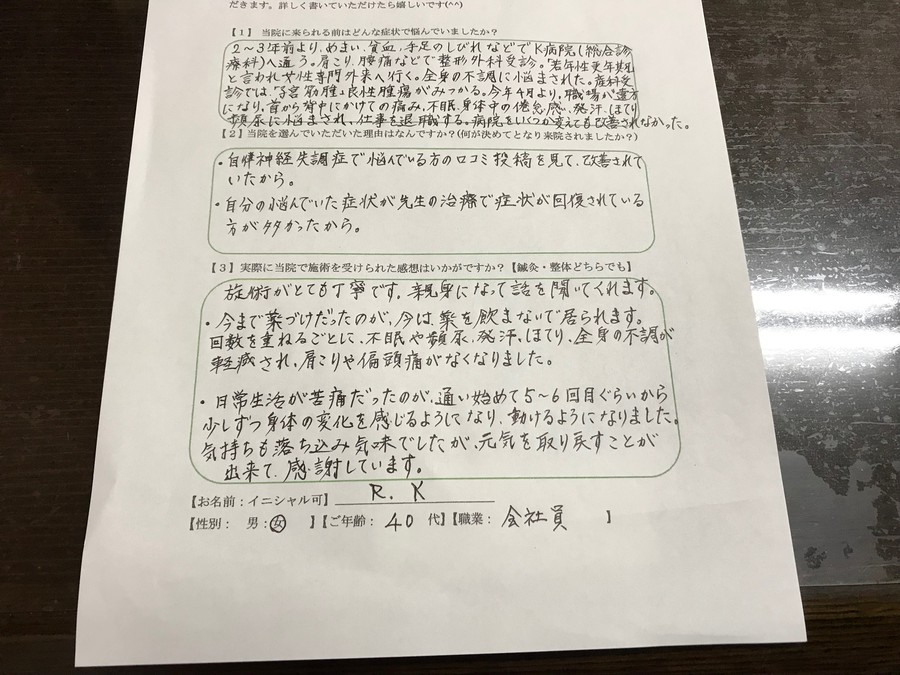 だきます。詳しく書いていただけたら嬉しいです(^^)
【1】 当院に来られる前はどんな症状で悩んでいましたか?
2～3年前より、めまい、貧血、手足のしびれなどでK病院(総合診
療科)へ通う。肩こり、腰痛などで整形外科受診。若年性更年期
と言われ女性専門外来へ行く。全身の不調に悩まされた。産科受
診では、子宮筋腫、良性腫瘍がみつかる。今年4月より、職場が遠方
になり、首から背中にかけての痛み、不眠、身体中の倦怠感、発汗、ほてり
頻尿に悩まされ、仕事を退職する。病院をいくつか変えても改善されなかった。
【2】当院を選んでいただいた理由はなんですか?(何が決めてとなり来院されましたか?)
・自律神経失調症で悩んでいる方の口コミ投稿を見て、改善されて
いたから。
・自分の悩んでいた症状が先生の治療で症状が回復されている
方が多かったから。
【3】実際に当院で施術を受けられた感想はいかがですか?【鍼灸・整体どちらでも】
施術がとても丁寧です。親身になって話を聞いてくれます。
・今まで薬づけだったのが、今は、薬を飲まないで居られます。
回数を重ねるごとに、不眠や頻尿、発汗、ほてり、全身の不調が
軽減され、肩こりや偏頭痛がなくなりました。
・日常生活が苦痛だったのが、通い始めて5～6回目ぐらいから
少しずつ身体の変化を感じるようになり、動けるようになりました。
気持ちも落ち込み気味でしたが、元気を取り戻すことが
出来て、感謝しています。
【お名前：イニシャル可】 R. K
【性別： 男：女 】【ご年齢： 40 代】【職業： 会社員 】